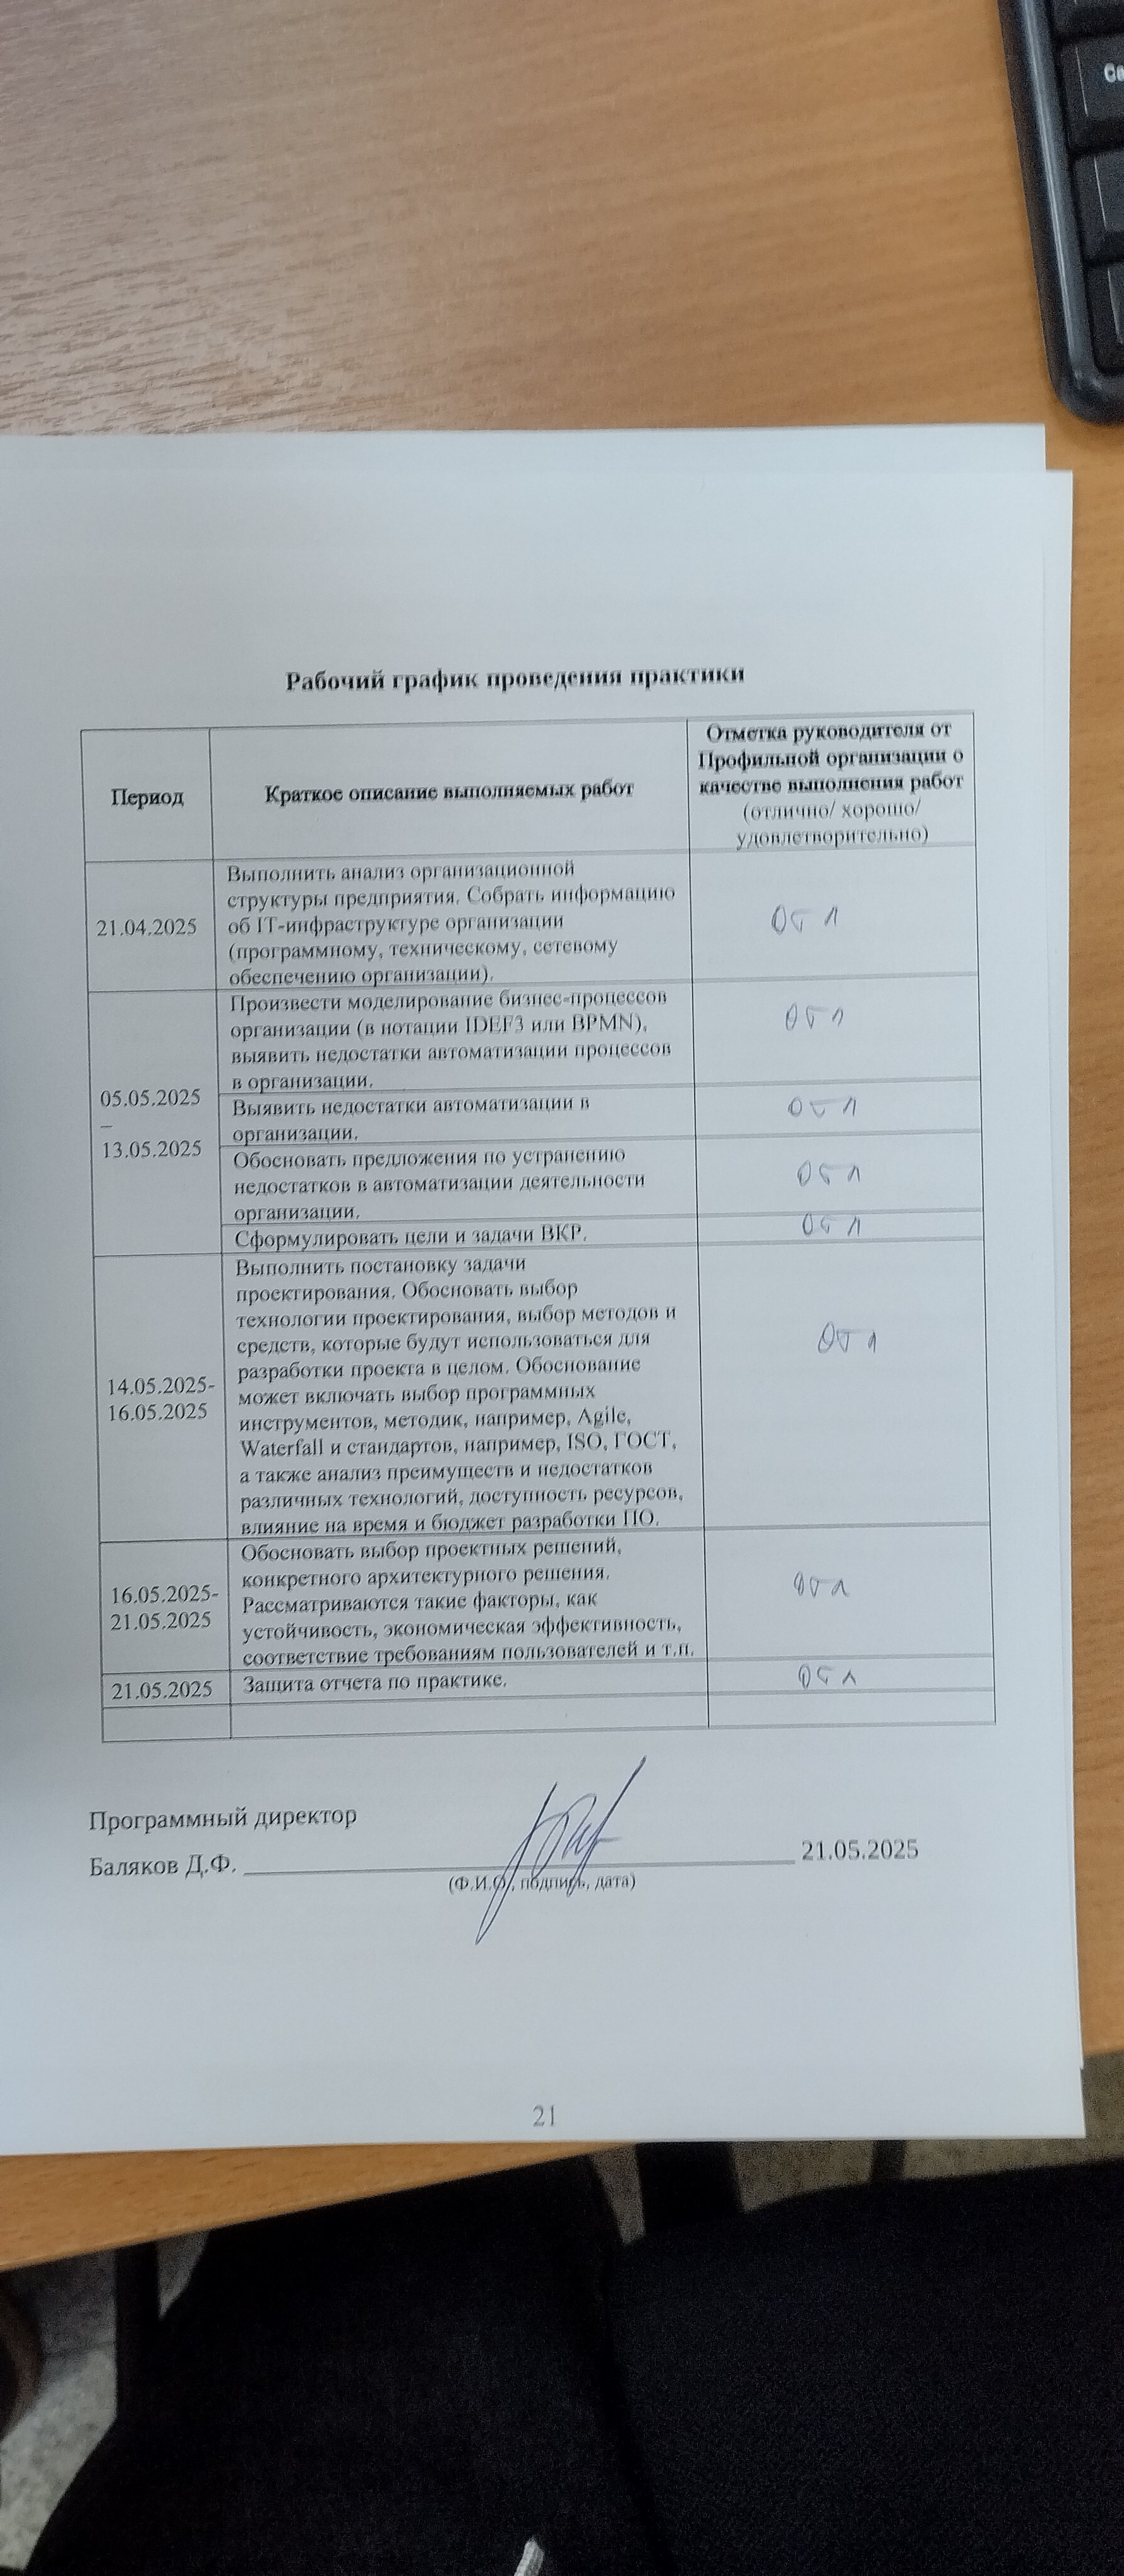 Рабочий график проведения практики
Период
Краткое описание выполняемых работ
Отметка руководителя от
Профильной организации о
качестве выполнения работ
(отлично/ хорошо/
удовлетворительно)
21.04.2025
Выполнить анализ организационной
структуры предприятия. Собрать информацию
об IT-инфраструктуре организации
(программному, техническому, сетевому
обеспечению организации).
отл
05.05.2025
–
13.05.2025
Произвести моделирование бизнес-процессов
организации (в нотации IDEF3 или BPMN),
выявить недостатки автоматизации процессов
в организации.
отл
Выявить недостатки автоматизации в
организации.
отл
Обосновать предложения по устранению
недостатков в автоматизации деятельности
организации.
отл
Сформулировать цели и задачи ВКР.
отл
14.05.2025-
16.05.2025
Выполнить постановку задачи
проектирования. Обосновать выбор
технологии проектирования, выбор методов и
средств, которые будут использоваться для
разработки проекта в целом. Обоснование
может включать выбор программных
инструментов, методик, например, Agile,
Waterfall и стандартов, например, ISO, ГОСТ,
а также анализ преимуществ и недостатков
различных технологий, доступность ресурсов,
влияние на время и бюджет разработки ПО.
отл
16.05.2025-
21.05.2025
Обосновать выбор проектных решений,
конкретного архитектурного решения.
Рассматриваются такие факторы, как
устойчивость, экономическая эффективность,
соответствие требованиям пользователей и т.п.
отл
21.05.2025
Защита отчета по практике.
отл
Программный директор
Баляков Д.Ф. 21.05.2025
(Ф.И.О., подпись, дата)
21